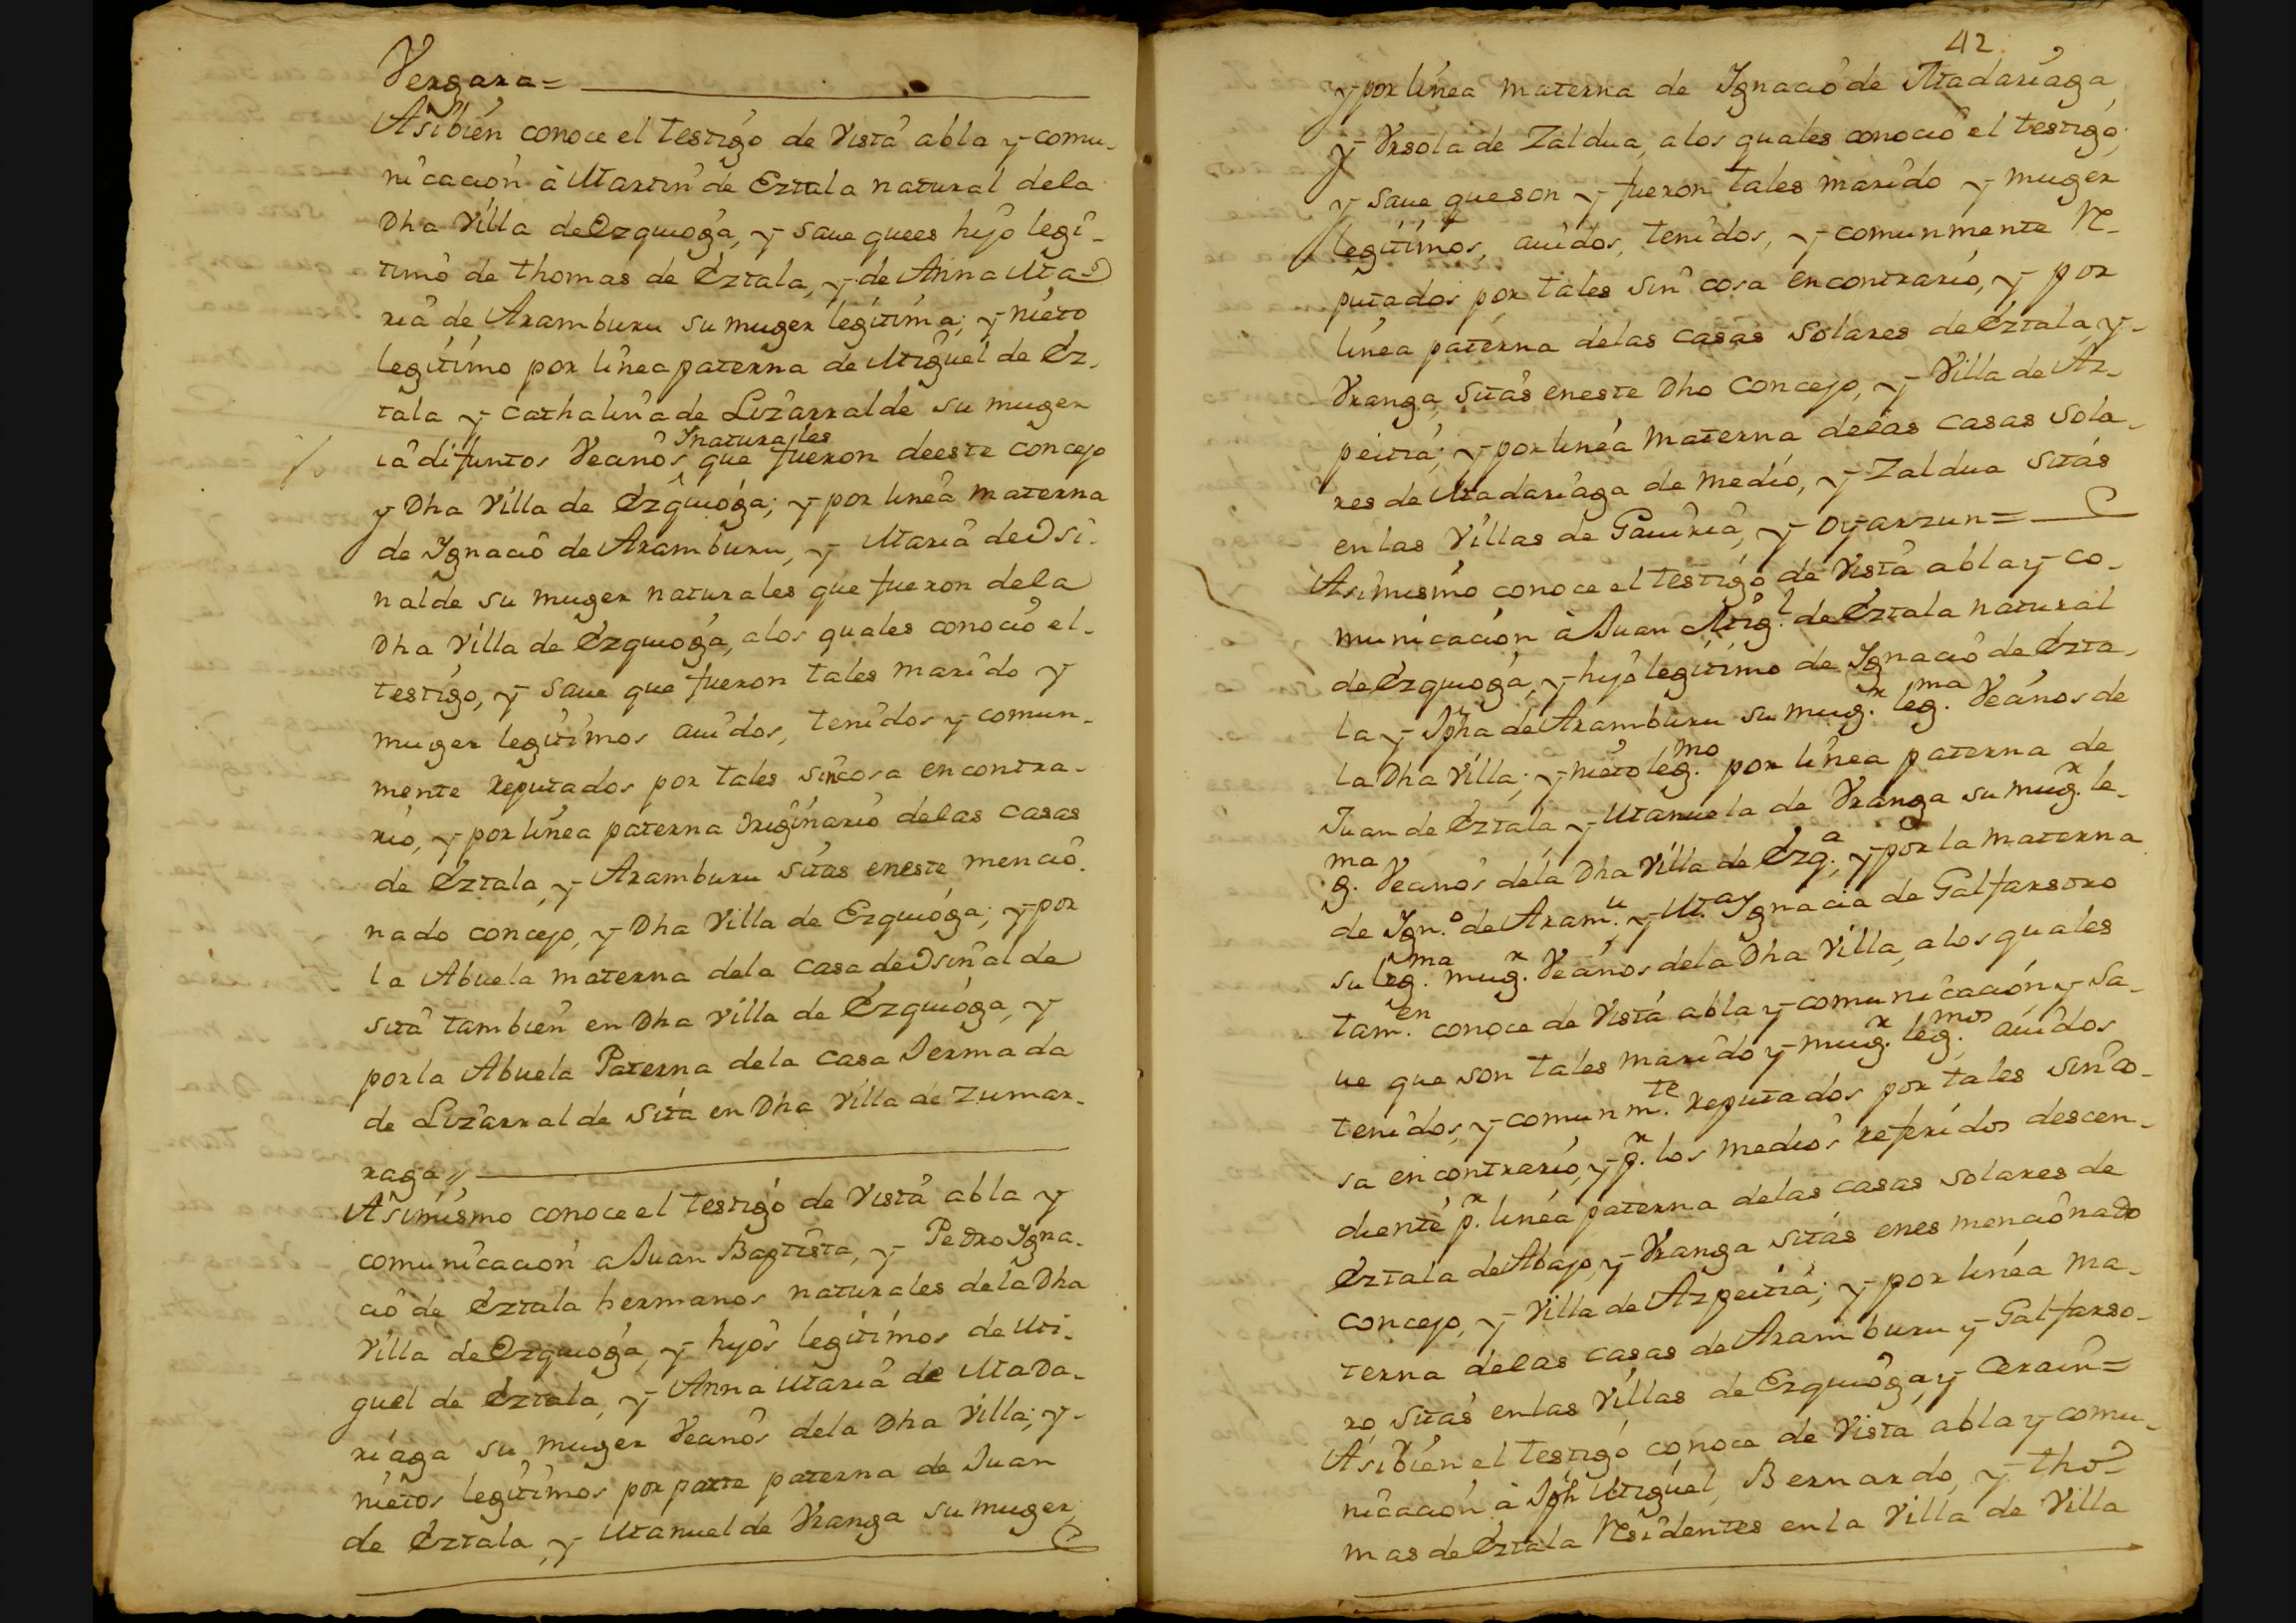 Vergara=
Asibien conoce el testigo de vista abla y comu-
nicacion à Martin de Eztala natural dela
Dha Villa de Ezquioga, y saue quees hijo legi-
timo de thomas de Eztala, y de Anna Ma-
ria de Aramburu su muger legitima; y nieto
legitimo por linea paterna de Miguel de Ez-
tala y Cathalina de Lizarralde su muger
ia difuntos Veanos, que fueron deeste concejo
Ynaturales
y Dha Villa de Ezquioga; y por linea materna
de Ygnacio de Aramburu, y Maria de Isi-
nalde su muger naturales que fueron dela
Dha Villa de Ezquioga, alos quales conocio el-
testigo, y saue que fueron tales marido y
muger legitimos auidos, tenidos y comun-
mente reputados por tales sincosa encontra-
rio, y por linea paterna originario delas casas
de Eztala, y Aramburu sitas eneste mencio-
nado concejo, y Dha Villa de Ezquioga; y por
la Abuela materna dela casa de Isinalde
sita tambien en Dha villa de Ezquioga, y
porla Abuela Paterna dela casa Iermada
de Lizarralde sita en Dha Villa de Zumar-
raga //
Asimismo conoce el testigo de Vista abla y
comunicacion a Juan Baptista, y Pedro Ygna-
cio de Eztala hermanos naturales dela Dha
Villa de Ezquioga, y hijos legitimos de Mi-
guel de Eztala, y Anna Maria de Mada-
riaga su muger Veanos dela Dha Villa; y-
nietos legitimos por parte paterna de Juan
de Eztala, y Manuel de Vranga su muger
42
y por linea materna de Ygnacio de Madariaga
y Vrsola de Zaldua, alos quales conocio el testigo;
y saue queson y fueron tales marido y muger
legitimos, auidos, tenidos, y comunmente re-
putados por tales sin cosa encontrario, y por
linea paterna delas casas solares de Eztala, y-
Vranga, sitas eneste Dho concejo, y Villa de Az-
peitia; y por linea materna delas casas sola-
res de Madariaga de medio, y Zaldua sitas
en las Villas de Gauiria, y Oyarzun=
Asimismo conoce el testigo de Vista abla y co-
municacion à Juan Mig.l de Eztala natural
de Ezquioga, y hijo legitimo de Ygnacio de Ezta-
la y Jpha de Aramburu su mug.r leg.ma Veanos de
la Dha Villa; y nieto leg.mo por linea paterna de
Juan de Eztala y Manuela de Vranga su mug.r le-
g.ma Veanos dela Dha Villa de Ezq.a, y por la materna
de Ygn.o de Aram.u y M.a Ygnacia de Galfarsoro
su leg.ma mug.r Veanos dela Dha Villa, alos quales
tam.en conoce de Vista abla y comunicacion, y sa-
ue que son tales marido y mug.r leg.mos auidos
tenidos, y comunm.te reputados por tales sin co-
sa encontrario, y p.r los medios referidos descen-
diente p.r linea paterna delas casas solares de
Eztala de Abajo, y Vranga sitas enes mencionado
concejo, y Villa de Azpeitia; y por linea ma-
terna delas casas de Aramburu y Galfarso-
ro, sitas enlas Villas de Ezquioga, y Cerain=
Asibien el testigo conoce de Vista abla y comu-
nicacion à Jph Miguel, Bernardo, y tho-
mas de Eztala residentes en la Villa de Villa